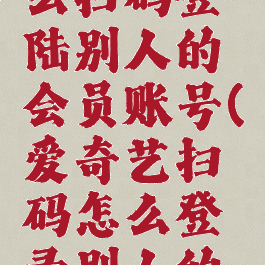 么扫码登
陆别人的
会员账号(
爱奇艺扫
码怎么登
录别人的